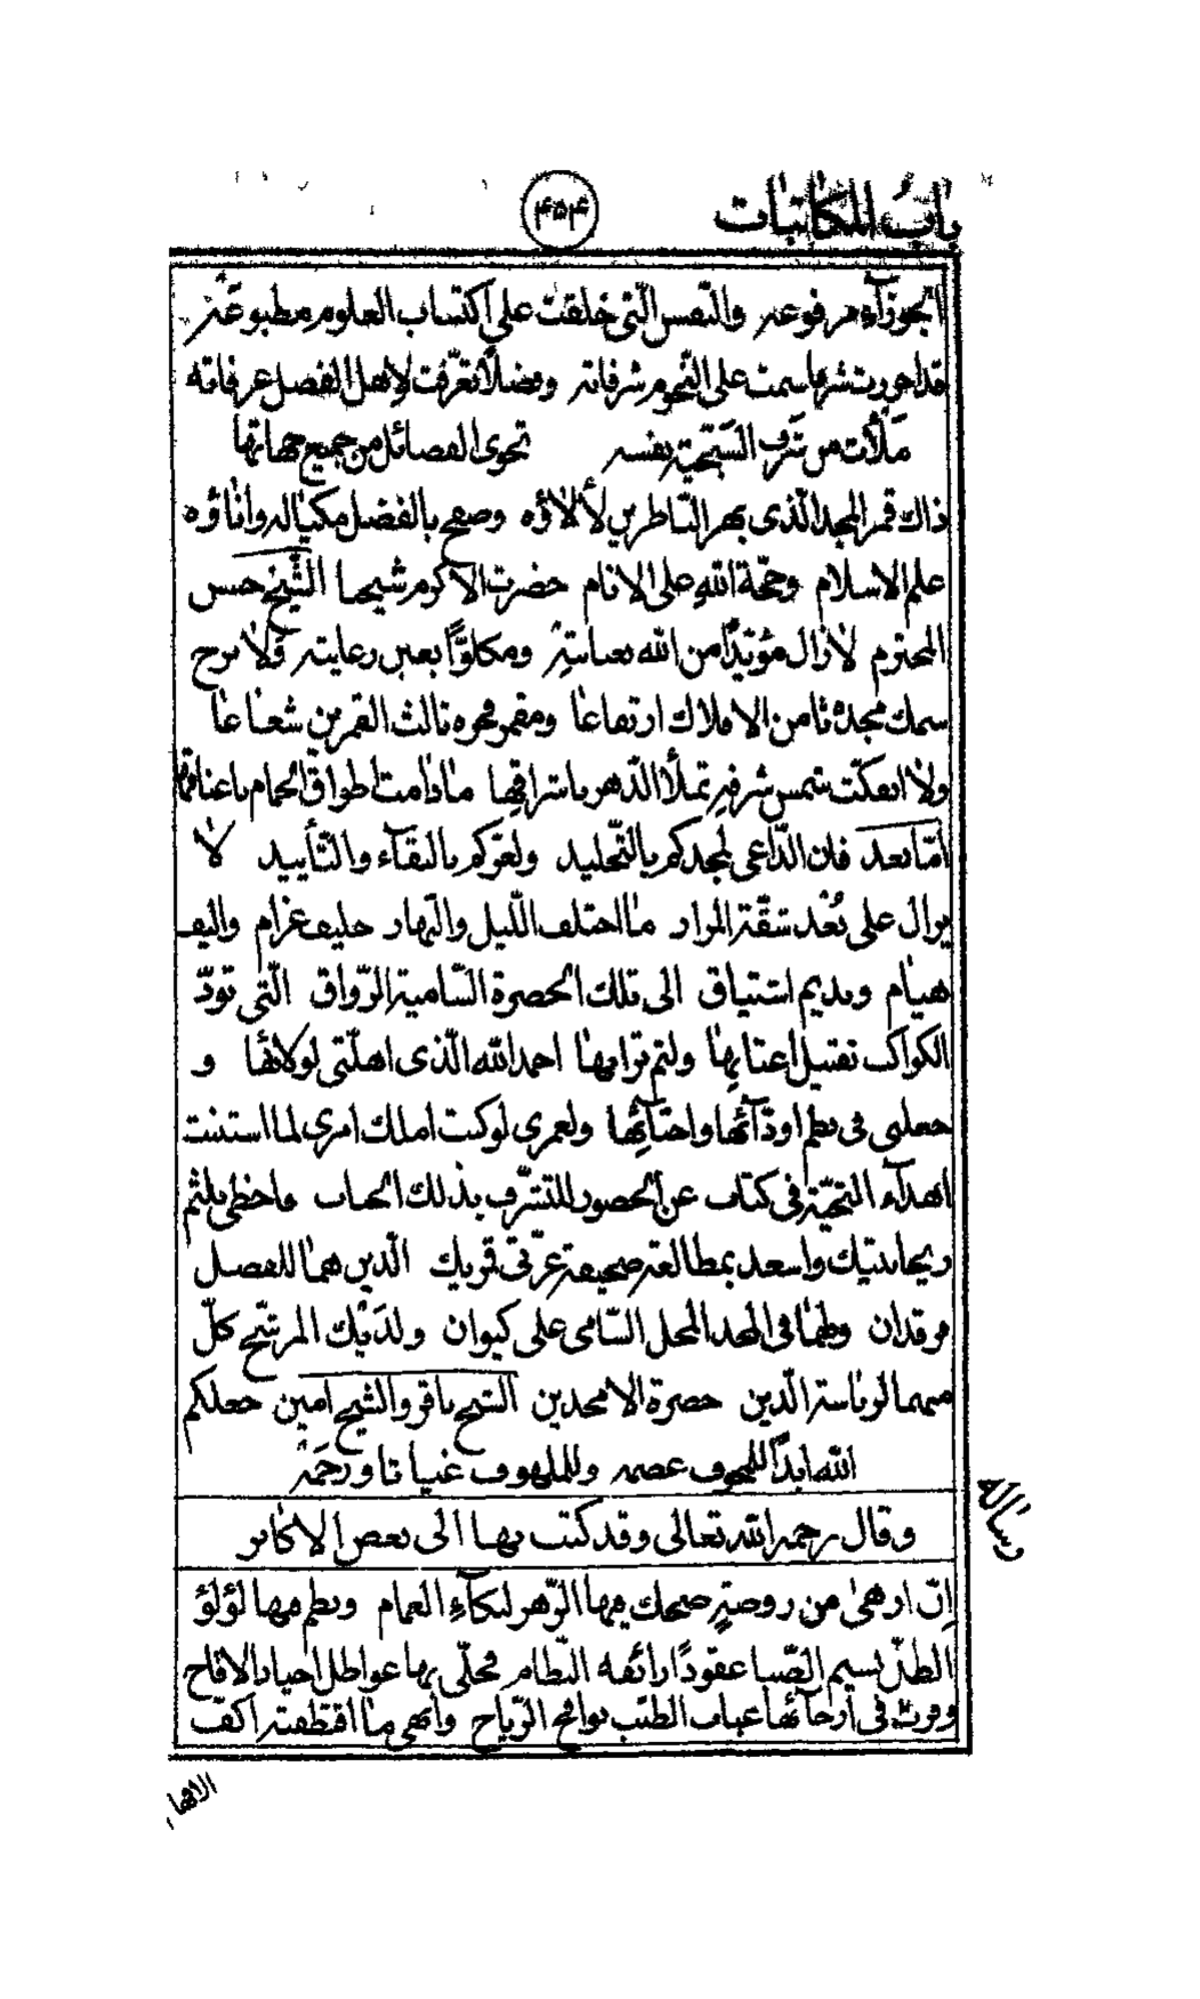 باب المكاتبات
۴۵۴
الجوزآء مرفوعه والنّفس الّتى خلقت على اكتساب العلوم مطبوعة
قد احورت شرفا سمت على النّجوم شرفاته وفضلاً تعرّفت لاهل الفضل عرفاته
مَلَأت من شرف السَّجيّة نفسه تحوى الفضائل من جميع جهاتها
ذاك قمر المجد الّذى بهر النّاظرين لألاؤه وصعج بالفضل مكياله وانآؤه
علم الاسلام وحجّة الله على الانام حضرت الاكرم شيخنا الشّيخ حسن
المحترم لازال مؤيّداً من الله بعنايتهِ ومكلوّاً بعين رعايته ولا برح
سمك مجده ثامن الافلاك ارتفاعا ومقمر فخره ثالث القمرين شعاعا
ولا انفكّت شمس شرفه تملأ الدّهر باشراقها ما دامت اطواق الحمام باعناقها
امّا بعد فان الدّاعى لمجدكم بالتّخليد ولعزّكم بالبقآء والتّأييد لا
يزال على بُعْد شقّة المزار ما اختلف اللّيل والنّهار حليف غرام واليف
هيام ونديم اشتياق الى تلك الحضرة السّامية الرّواق الّتى تودّ
الكواكب تقبيل اعتابها ولثم ترابها احمد الله الّذى اهلّنى لولائها و
جعلنى فى نظم اودّآئها واحبّآئها ولعمرى لو كنت املك امرى لما استنبت
اهدآء التّحيّة فى كتاب عن الحضور للتشرّف بذلك الجناب واحظى بلثم
ريحانتيك واسعد بمطالعة صحيفة غرّتى قمريك الّذين هما للفضل
فرقدان ولهما فى المجد المحل السّامى على كيوان ولدَيْك المرشّح كلّ
منهما لرياسة الدّين حضرة الامجدين الشيخ باقر والشيخ امين جعلكم
الله ابداً للمخوف عصمه وللملهوف غياثا ورحمَةً
وقال رحمه الله تعالى وقد كتب بها الى بعض الاكابر
رسالة
اِنّ ازهى من روضةٍ ضحك فيها الزّهر لبكآءِ الغمام ونظم فيها لؤلؤ
الطلّ نسيم الصّبا عقودًا رائقة النّظام فحلّى بها عواطل اجياد الاقاح
وفرت فى ارجآئها عباب الطيّب نوافح الرّياح وابهى ما اقتطفته اكف
الافها